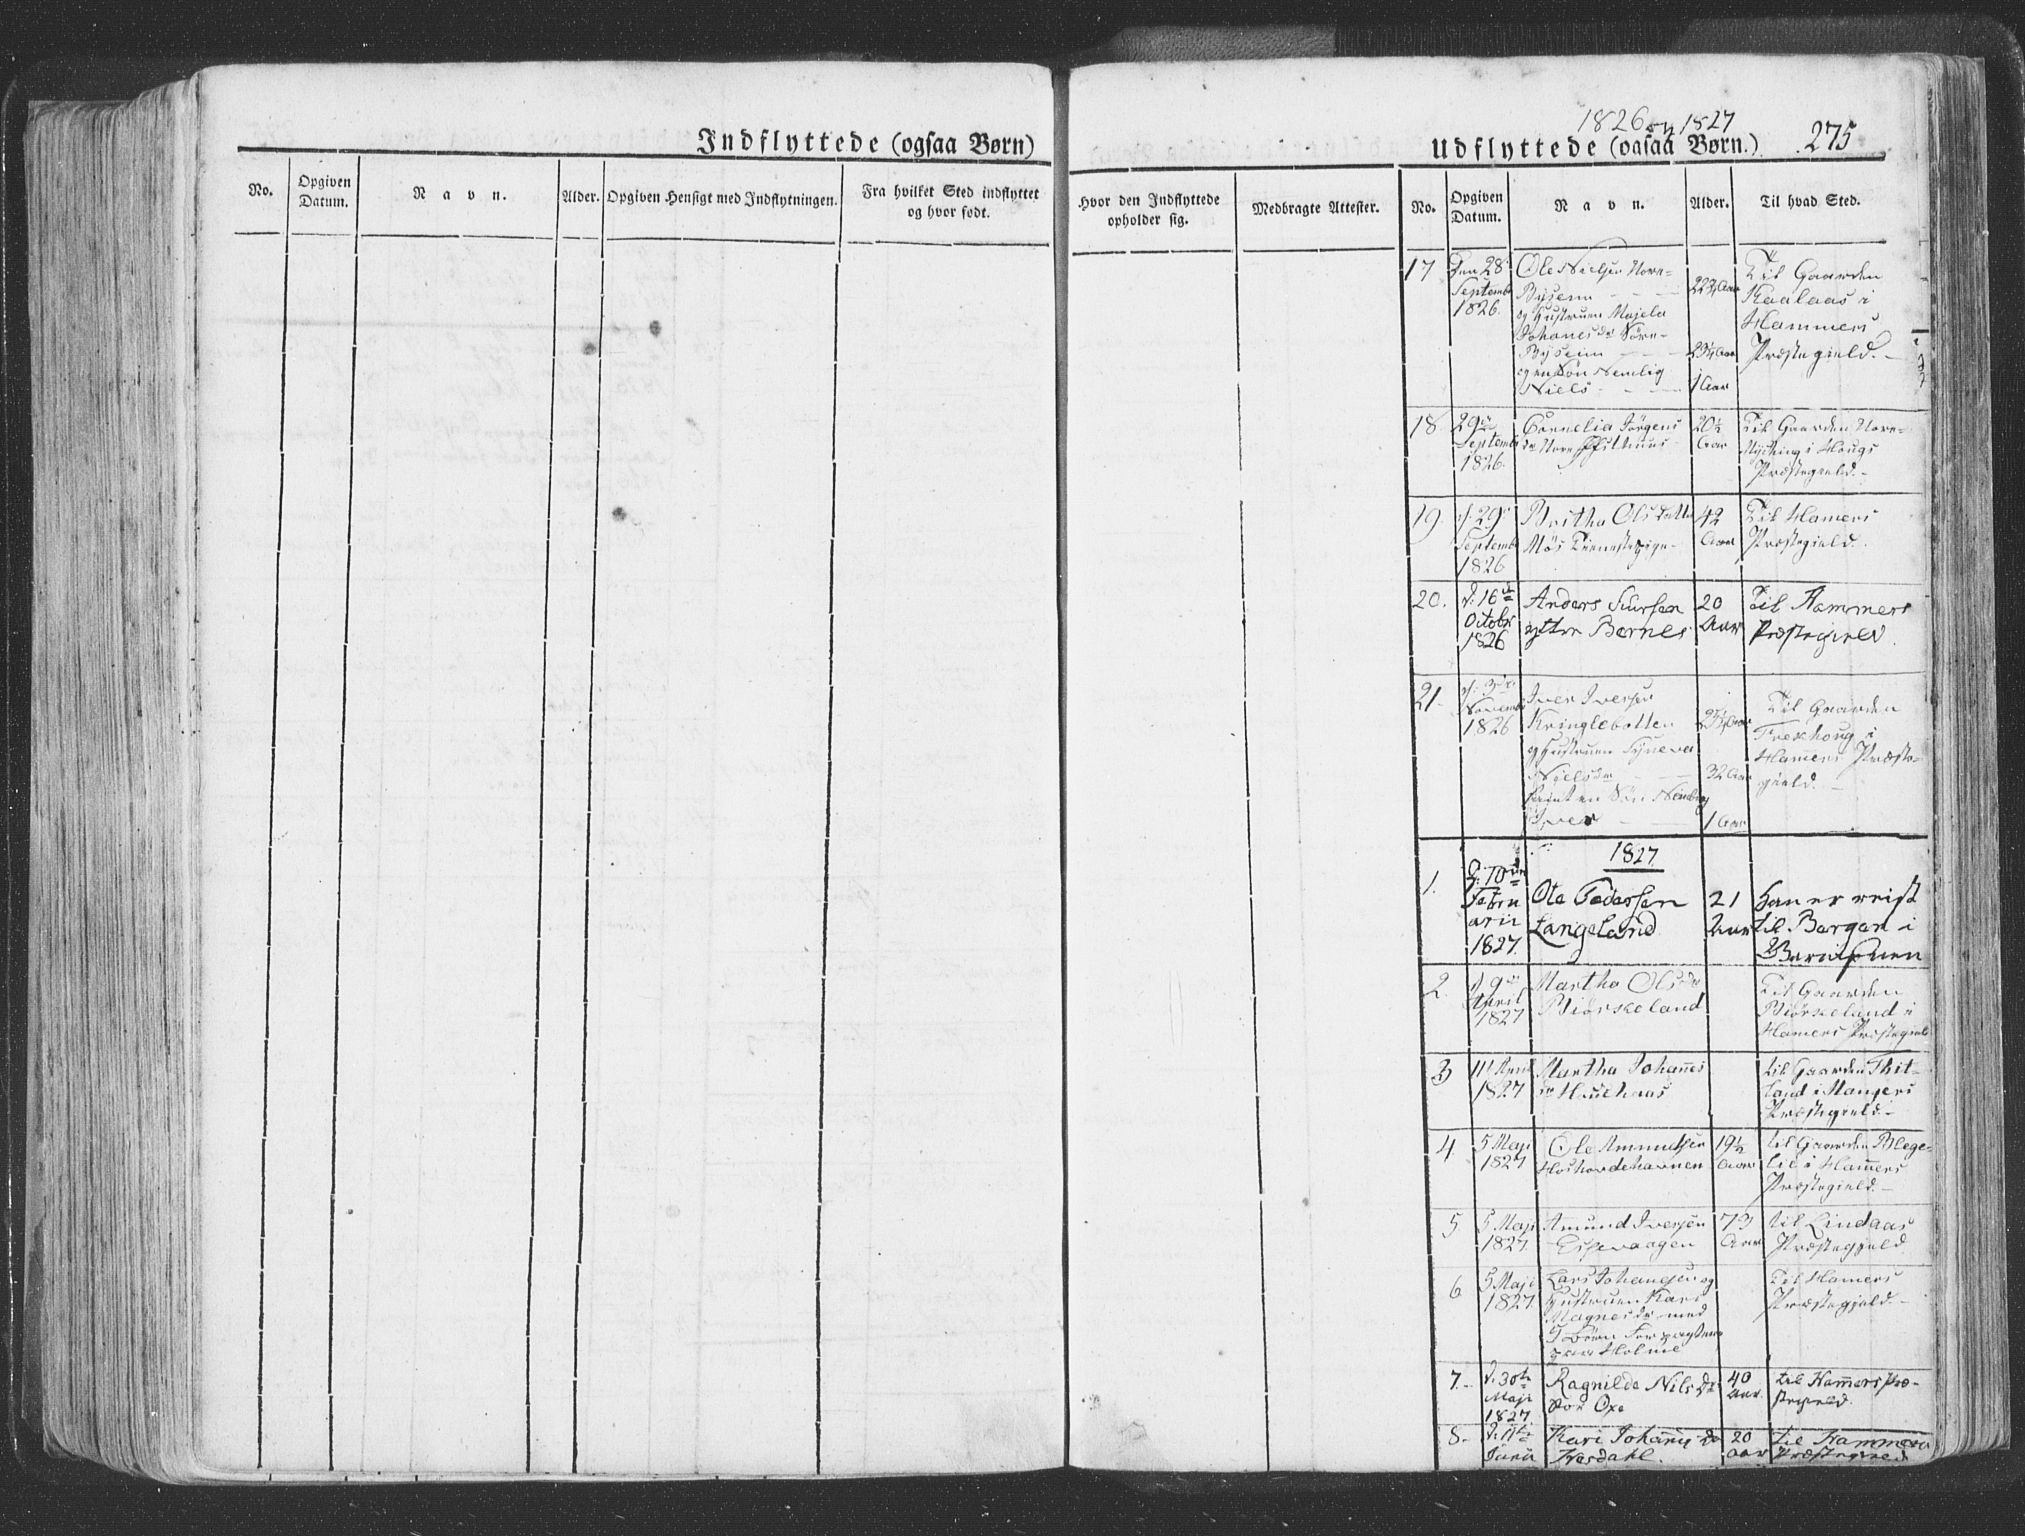 Indflyttede (ogsaa Børn)
No.
Opgiven
Datum.
Navn.
Alder.
Opgiven Hensigt med Indflytningen.
Fra hvilket Sted indflyttet
og hvor født.
1826 og 1827
Udflyttede (ogsaa Børn.)
275
Hvor den Indflyttede
opholder sig.
Medbragte Attester.
No.
Opgiven
Datum.
Navn.
Alder.
Til hvad Sted.
17
Den 28
Septembr
1826.
Ole Nielsen Nore-
Bysem
og Hustruen
Johanesdr Søre-
Byseim
og en Søn Nemlig
Niels
22¾ Aar
1 Aar
Til Gaarden
Kaalaas i
Hammers
Præstegield.
18
29de
Septembr
1826.
Cornelia Jørgens
dr Nore
20½
Aar
Til Gaarden Nore-
i Hougs
Præstegield.
19.
d. 29de
Septembr
1826
Britha Olsdatter
Møs Tienestepige
42
Aar
Til Hamers
Præstegield.
20.
d: 16de
Octobr
1826
Anders
ytre Bernes
20
Aar
Til Hammers
Præstegield.
21.
Novembr
1826
Iver Iversen
Kringlebotten
og Hustruen Synneva
Nielsdr
samt en Søn Nemlig
Iver
32 Aar
1 Aar
Til Gaarden
i
Hamers Præste-
gield.
1827
1.
d: 10de
Febru
arii
1827.
Ole Pedersen
Langeland
21
Aar
Han er reist
til Bergen i
2.
d 9de
April
1827
Martha Olsdr
Biørskeland
Til Gaarden
Biørskeland i
Hamers Præstegield
3
11te April
1827
Martha Johannes
dr
til Gaarden
land i Mangers
Præstegield.
4
5 Maji
1827
Ole Amundsen
19½
Aar
til Gaarden Blege-
lie i Hamers
Præstegield.
5
5 Maji
1827.
Amund Iversen
Espevaagen
73
Aar
til Lindaas
Præstegjeld
6
5 Maji
1827
Lars Johanesen og
Hustruen Kari
Magnesdr med
5 Børn
paa Holme
Til Hamers
Præstegjeld.
7.
d. 30te
Maji
1827
Ragnilde Nilsdr
Oxe
40
Aar.
til Hamers Præ-
stegield.
8.
d. 11te
Junii
Kari Johannesdr
20
Aar
til Hammers
Præstegield